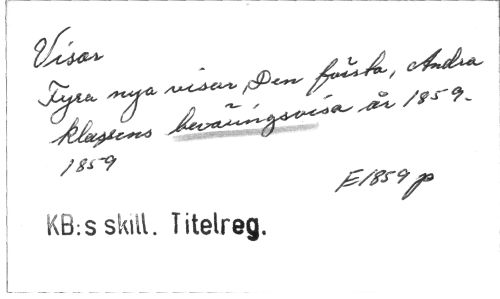 Visor
Fyra nya visor, Den första, Andra
klassens beväringsvisa år 1859.
1859
E1859p
KB:s skill. Titelreg.